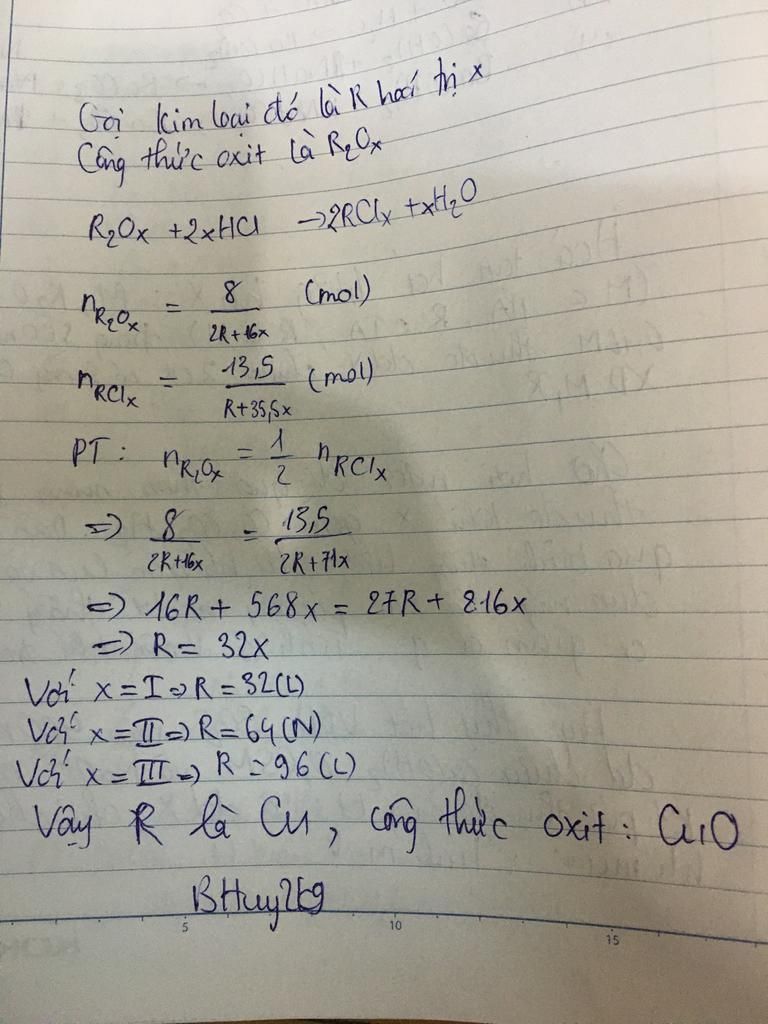 Gọi kim loại đó là R hoá trị x
Công thức oxit là R₂Oₓ
R₂Oₓ + 2xHCl → 2RClₓ + xH₂O
n_{R₂Oₓ} = 8/(2R+16x) (mol)
n_{RClₓ} = 13,5/(R+35,5x) (mol)
PT: n_{R₂Oₓ} = 1/2 n_{RClₓ}
=> 8/(2R+16x) = 13,5/(2R+71x)
=> 16R + 568x = 27R + 216x
=> R = 32x
Với x = I => R = 32 (L)
Với x = II => R = 64 (N)
Với x = III => R = 96 (L)
Vậy R là Cu, công thức oxit: CuO
BHuy269
5 10 15